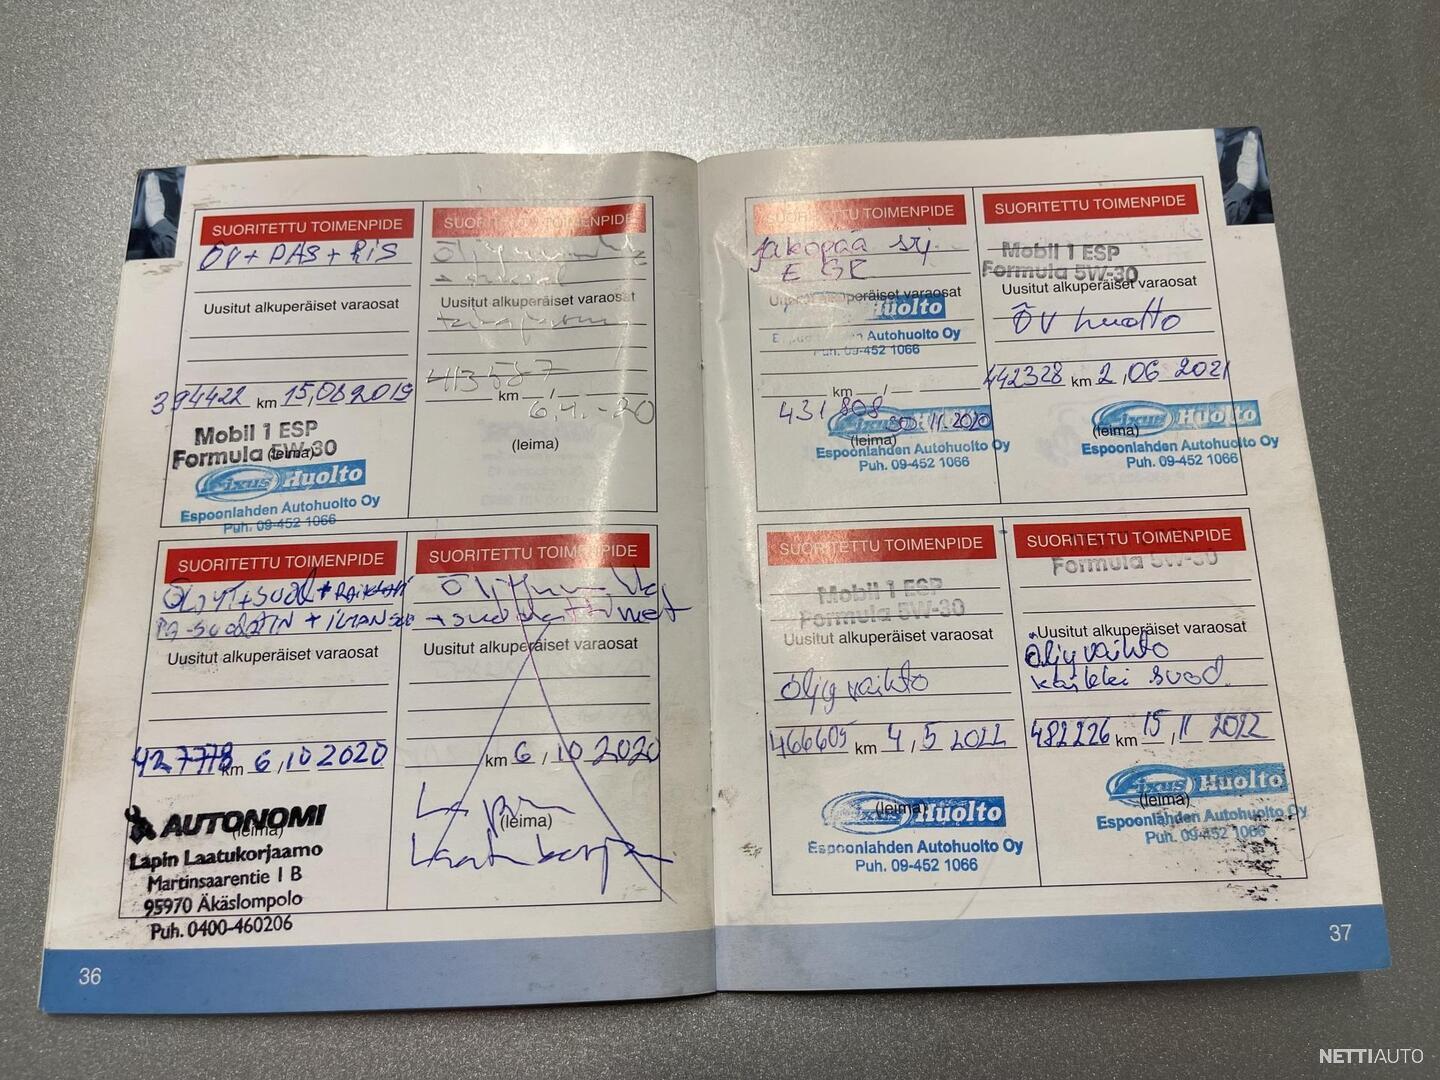 SUORITETTU TOIMENPIDE
ÖV + PAS + RIS
Uusitut alkuperäiset varaosat
394422 km 15,08 2019
Mobil 1 ESP
Formula 5W-30
(leima)
Fixus Huolto
Espoonlahden Autohuolto Oy
Puh. 09-452 1066
SUORITETTU TOIMENPIDE
Uusitut alkuperäiset varaosat
413587
km /
6.4.-20
(leima)
SUORITETTU TOIMENPIDE
ÖLJYT+SUOD + RAIKAS
PA-SUODATIN + ILMANSUO
Uusitut alkuperäiset varaosat
427778 km 6,10 2020
AUTONOMI
(leima)
Lapin Laatukorjaamo
Martinsaarentie 1 B
95970 Äkäslompolo
Puh. 0400-460206
SUORITETTU TOIMENPIDE
+suodattimet
Uusitut alkuperäiset varaosat
km 6, 10 2020
Lapin
(leima)
36
SUORITETTU TOIMENPIDE
Jakopää srj
EGR
Uusitut alkuperäiset varaosat
Huolto
Espoonlahden Autohuolto Oy
Puh. 09-452 1066
km /
431 808 30.11.2020
(leima)
Espoonlahden Autohuolto Oy
Puh. 09-452 1066
SUORITETTU TOIMENPIDE
Mobil 1 ESP
Formula 5W-30
Uusitut alkuperäiset varaosat
ÖV huolto
442328 km 2,06 2021
Fixus Huolto
(leima)
Espoonlahden Autohuolto Oy
Puh. 09-452 1066
SUORITETTU TOIMENPIDE
Mobil 1 ESP
Formula 5W-30
Uusitut alkuperäiset varaosat
öljy vaihto
466605 km 4,5 2022
Fixus Huolto
(leima)
Espoonlahden Autohuolto Oy
Puh. 09-452 1066
SUORITETTU TOIMENPIDE
Formula 5W-30
Uusitut alkuperäiset varaosat
öljy vaihto
kaikki suod.
482226 km 15,11 2022
Fixus Huolto
(leima)
Espoonlahden Autohuolto Oy
Puh. 09-452 1066
37
NETTIAUTO